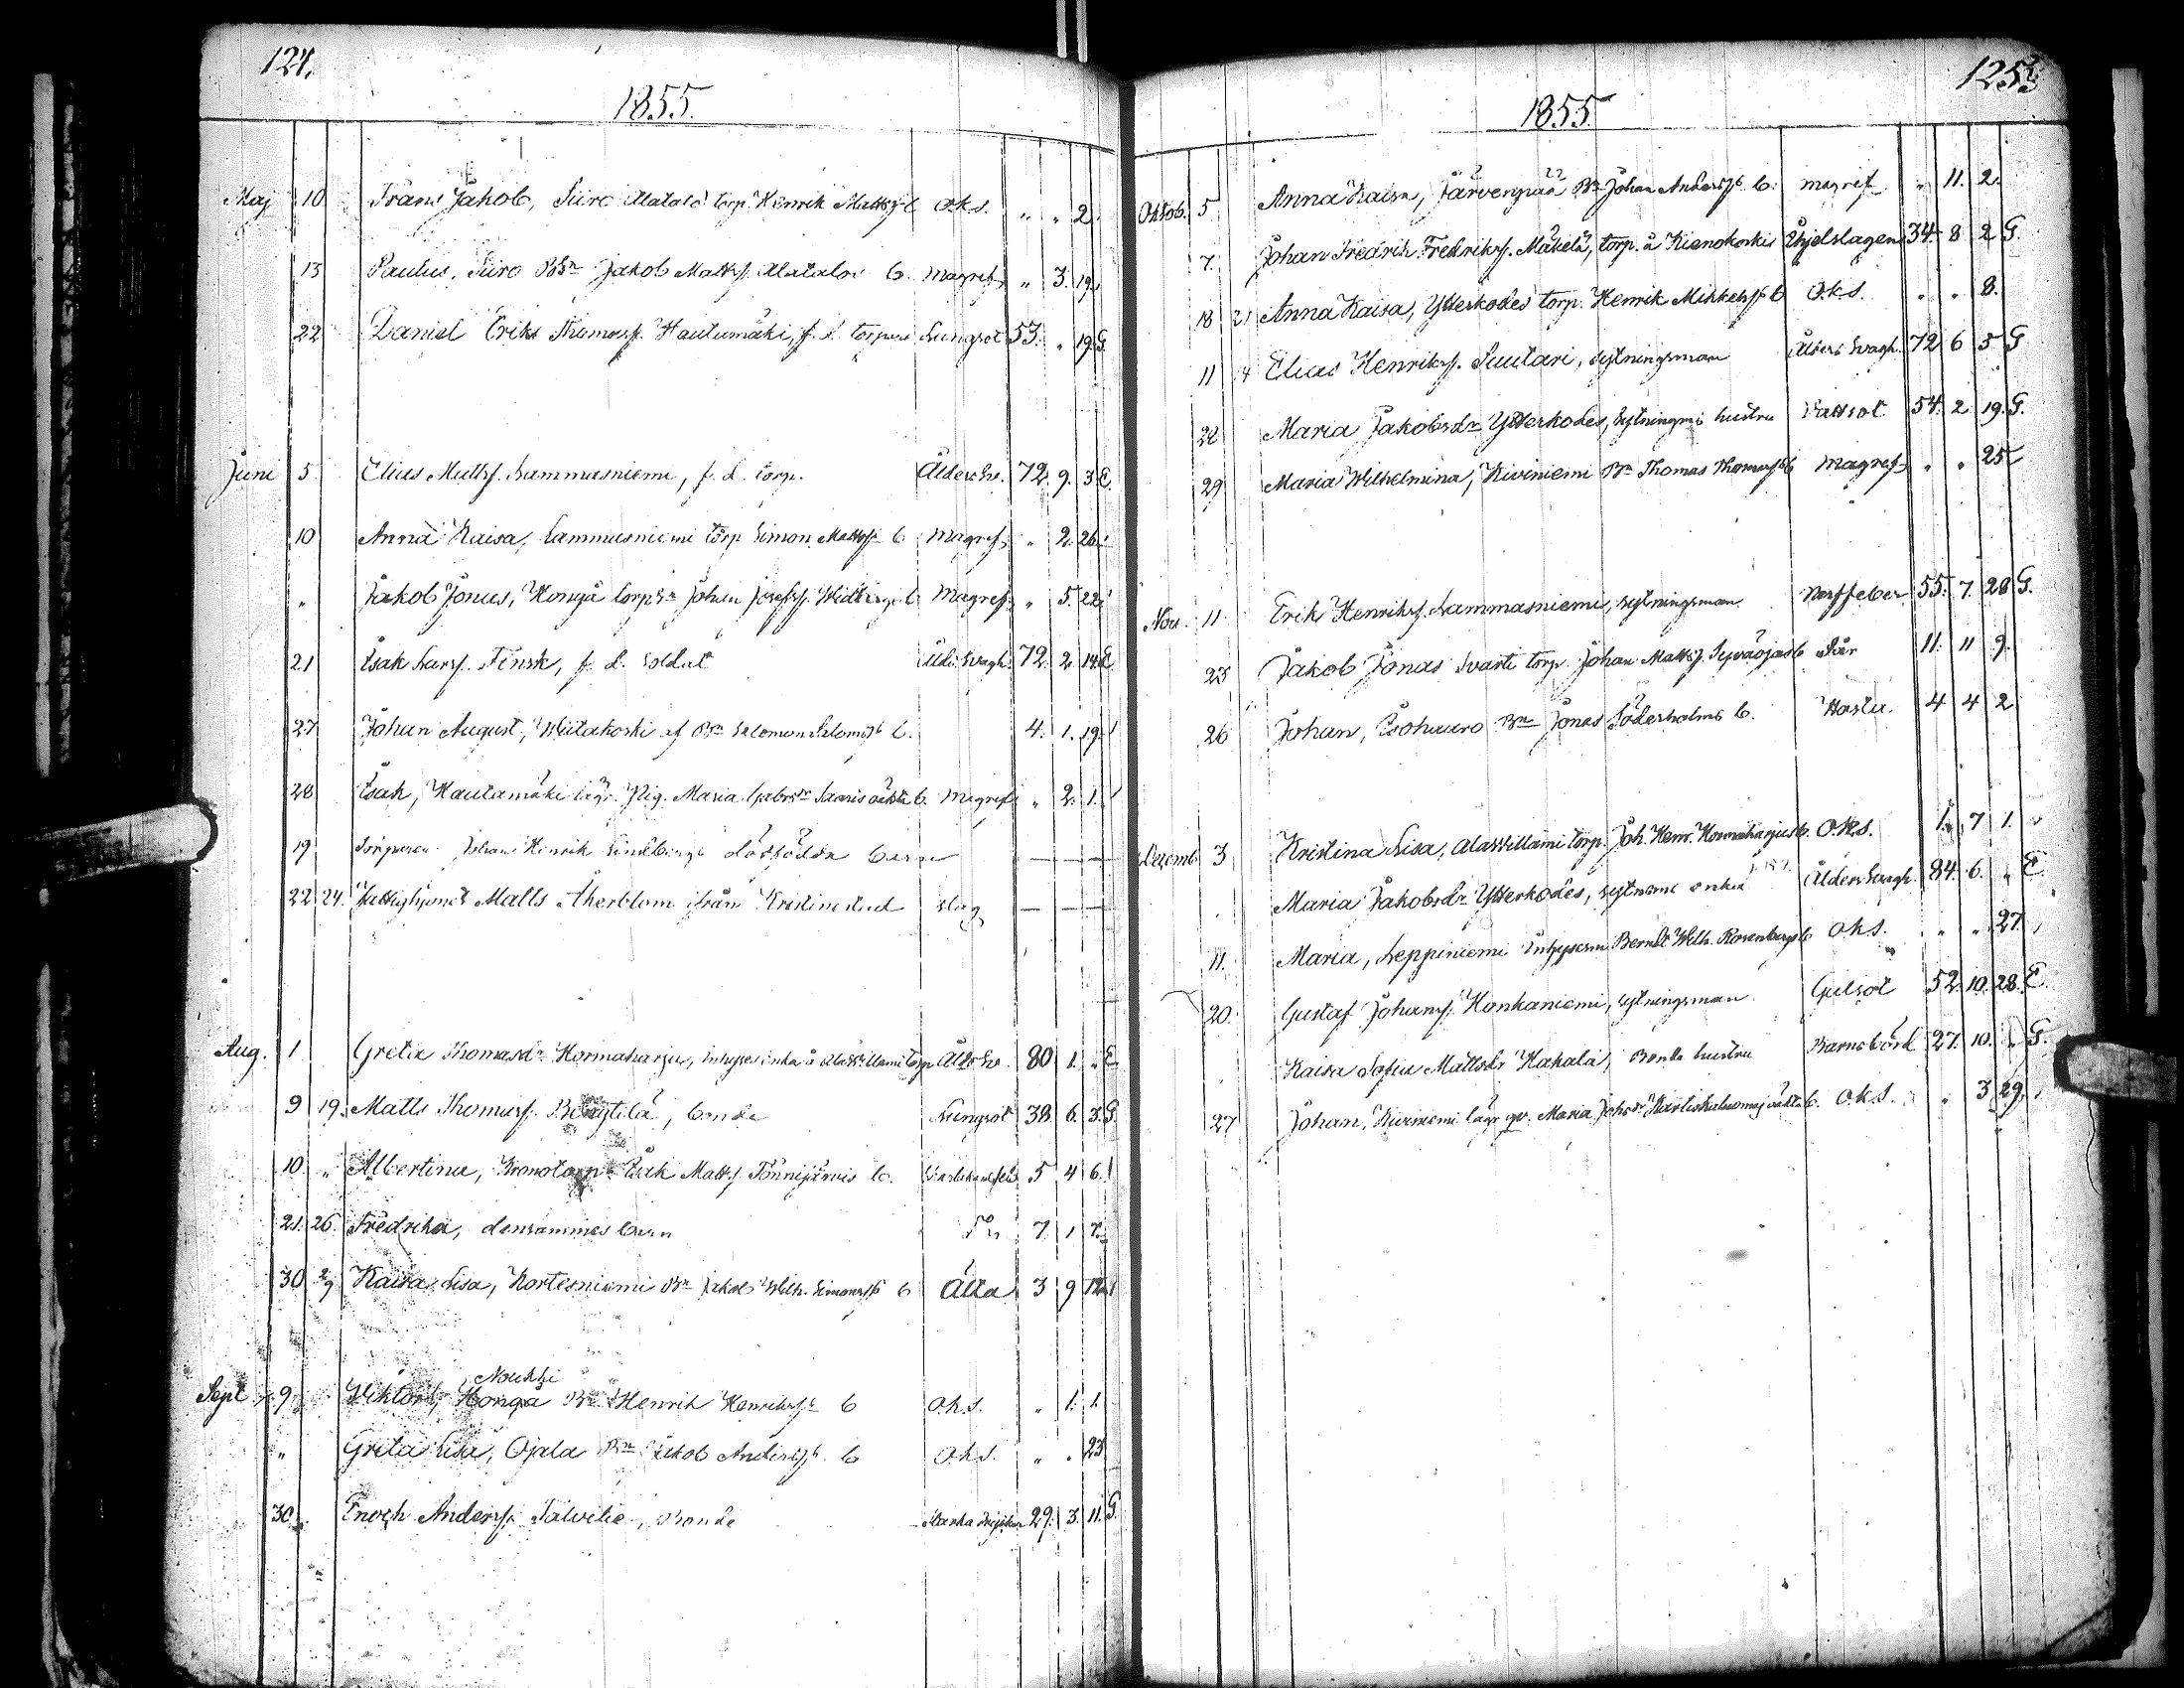 124.
1855.
Maj 10 Frans Jakob, Siiro Alatalo torp. Henrik Mattsfs b. O.k.s. " " 2.
13 Paulus, Siiro Jakob Mattsf. Alatalos b. Magref. " 3. 19.
22 Daniel Eriks Thomasf. Hautamäki, f. d. torpare Lungsot 53. " 19. G.
Juni 5 Elias Mattsf. Lammasniemi, f. d. torp. Åldersv. 72. 9. 3. E.
10 Anna Kaisa, Lammasniemi torp. Simon Mattsfs b. Magref. " 2. 26.
" Jakob Jonas, Honga Johan Josefsf. b. Magref. " 5. 22.
21 Isak Larsf. Finsk, f. d. soldat Åld. svagh. 72. 2. 14. E.
27 Johan August, Wiitakoski af Bn Salomon Salomsfs b. 4. 1. 19.
28 Isak, Hautamäki Pig. Maria b. Magref. " 2. 1.
19 Torparen Johan Henrik Lindbergs dödfödda barn — — —
22 24. Fattighjonet Matts Åkerblom ifrån Kristinestad slag — — —
Aug. 1 Greta Thomasdr Hormaharju, inhyses enka å torp Åld. sv. 80 1. " E.
9 19. Matts Thomasf. , bonde Lungsot 38. 6. 3. G.
10 " Albertina, Isak Mattsf. Tönnijärvis b. 5 4 6.
21. 26. Fredrika, densammes barn 7. 1
30 2/9 Kaisa Lisa, Kortesniemi Bn Jakob Wilh. Simonsfs b. Ålta 3 9 12.
Noukki
Sept. 9. Viktor, Honga Bn Henrik Henriksfs b O.k.s. " 1. 1.
" Greta Lisa, Ojala Bn Jakob Andersfs b O.k.s. " " 23
30. Enoch Andersf. Talvitie, Bonde 29. 3. 11. G.
125.
1855.
Oktob. 5 Anna Kaisa, Järvenpää Bn Johan Andersfs b. magref. " 11. 2.
7. Johan Fredrik Fredriksf. Mäkelä, torp. å Kienokoski Ihjelslagen 34. 8 2 G.
18 21 Anna Kaisa, Ytterkodes torp. Henrik Mikkelsfs b O.k.s. " " 8.
11 Elias Henriksf. Suutari, sytningsman Ålders svagh. 72 6 5 G
22 Maria Jakobsdr Ytterkodes, sytningms hustru Vattsot 54. 2 19. G.
29 Maria Wilhelmina, Kiviniemi Bn Thomas Thomasfs b Magref. " " 25
Nov. 11 Erik Henriksf. Lammasniemi, sytningsman Nerffeber 55. 7. 28 G.
23 Jakob Jonas Svarti torp. Johan Mattsf. b. Sår 11. 11 9.
26 Johan, Isohauro Bn Jonas Söderholms b. Hosta. 4 4 2
Decemb. 3 Kristina Lisa, Alavillami torp. Joh. Henr. Hormaharjus b. O.k.s. 1. 7 1.
Maria Jakobsdr Ytterkodes, sytnsms enka Ålders svagh. 84. 6. " E.
11. Maria, Leppiniemi Inhysesm Berndt Wilh. Rosenbergs b O.k.s. " " 27.
20. Gustaf Johansf. Honkaniemi, sytningsman Gulsot 52. 10. 28. E.
Kaisa Sofia Mattsdr Hakala, Bonde hustru Barnsbörd 27. 10. " G.
27 Johan, Kiviniemi Maria O.k.s. " 3 29.